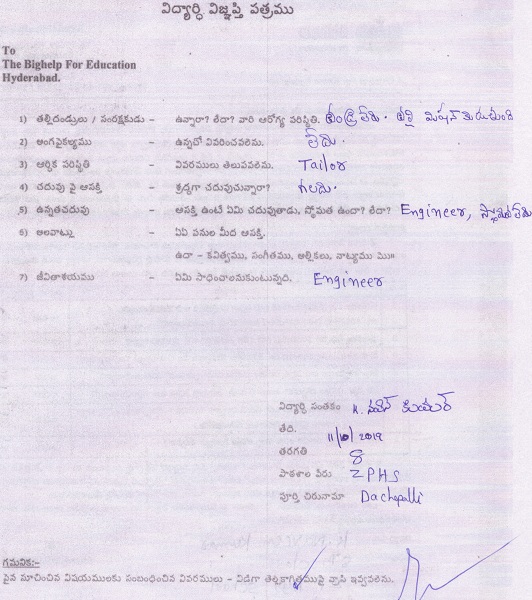 విద్యార్థి విజ్ఞప్తి పత్రము
To
The Bighelp For Education
Hyderabad.
1) తల్లిదండ్రులు / సంరక్షకుడు – ఉన్నారా? లేదా? వారి ఆరోగ్య పరిస్థితి. తండ్రి లేరు. తల్లి మిషన్ కుడుతుంది
2) అంగవైకల్యము – ఉన్నచో వివరించవలెను. లేదు.
3) ఆర్థిక పరిస్థితి – వివరములు తెలుపవలెను. Tailor
4) చదువు పై ఆసక్తి – శ్రద్ధగా చదువుచున్నారా? గలదు.
5) ఉన్నతచదువు – ఆసక్తి ఉంటే ఏమి చదువుతాడు, స్థోమత ఉందా? లేదా? Engineer, స్థోమత లేదు
6) అలవాట్లు – ఏఏ పనుల మీద ఆసక్తి.
ఉదా – కవిత్వము, సంగీతము, అల్లికలు, నాట్యము మొ॥
7) జీవితాశయము – ఏమి సాధించాలనుకుంటున్నది. Engineer
విద్యార్థి సంతకం K. నవీన్ కుమార్
తేది. 11/10/2019
తరగతి 8
పాఠశాల పేరు ZPHS
పూర్తి చిరునామా Dachepalli
గమనిక:-
పైన సూచించిన విషయములకు సంబంధించిన వివరములు – విడిగా తెల్లకాగితముపై వ్రాసి ఇవ్వవలెను.